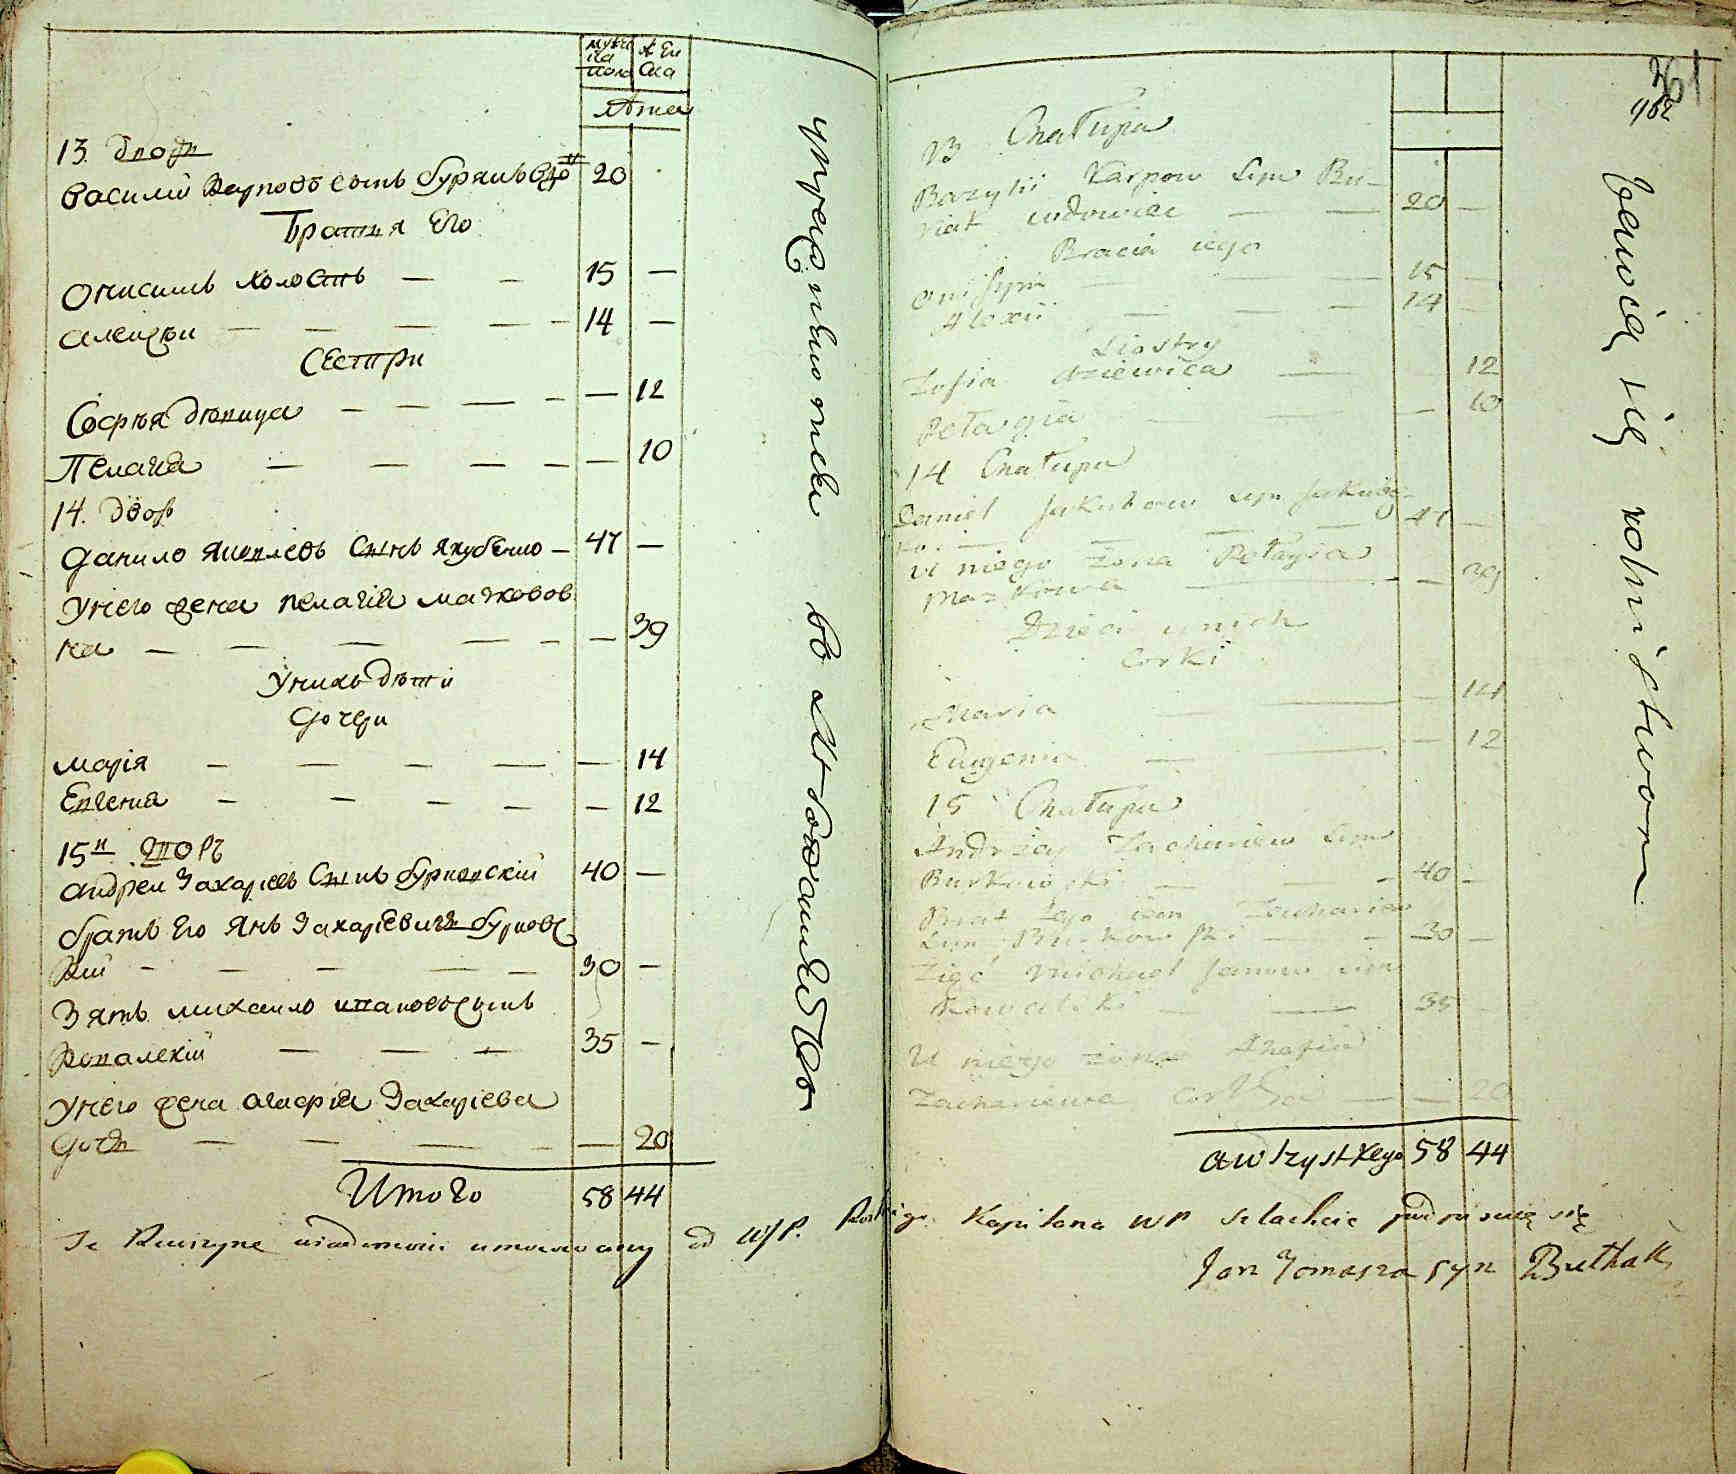 мужска пола
женска
Лета
13. двор
Василий Карповъ сынъ Бурякъ вдо 20
Братия Его
Онисимъ холостъ — — 15 —
Алексѣи — — — — — 14 —
Сестри
Софья дѣвица — — — — — 12
Пелагия — — — — — 10
14. двор
Данило Яковлевъ Сынъ Якубенко — 47 —
У него жена Пелагия Марковов
на — — — — — — 39
У нихъ дѣти
Дочери
Мария — — — — — 14
Евгения — — — — — 12
15й дворъ
Андреи Захариевъ Сынъ Бурковский 40 —
братъ Его Янъ Захариевичъ Бурковс
кий — — — — — 30 —
Зять михаило ивановъ сынъ
Ковалский — — — 35 —
У него жена Агафия Захариева
дочь — — — — — 20
Итого 58 44
упражняются во хлебопашестве
361
13 Chałupa
Bazylii Karpow syn Bu-
riak wdowiec — — 20 —
Bracia iego
Onisym — — — 15 —
Alexii — — — 14 —
Siostry
Zofia dziewica — — 12
Pelagia — — — 10
14 Chałupa
Daniel Jakubow syn Jakube-
ko — — — 47 —
U niego żona Pelagia
Markowa — — 39
Dzieci u nich
Corki
Maria — — — 14
Eugenia — — — 12
15 Chałupa
Andrzey Zachariew syn
Burkowski — — — 40 —
Brat Iego Ian Zachariew
syn Burkowski — — 30 —
Zięć Michael Janow syn
Kowalski — — 35 —
U niego żona Ahafia
Zachariewa Corka — — 20
a wszystkego 58 44
bawią się rolnistwom
Kapitana WP szlachcic podpisuię się
Jan Tomasza syn Buthak